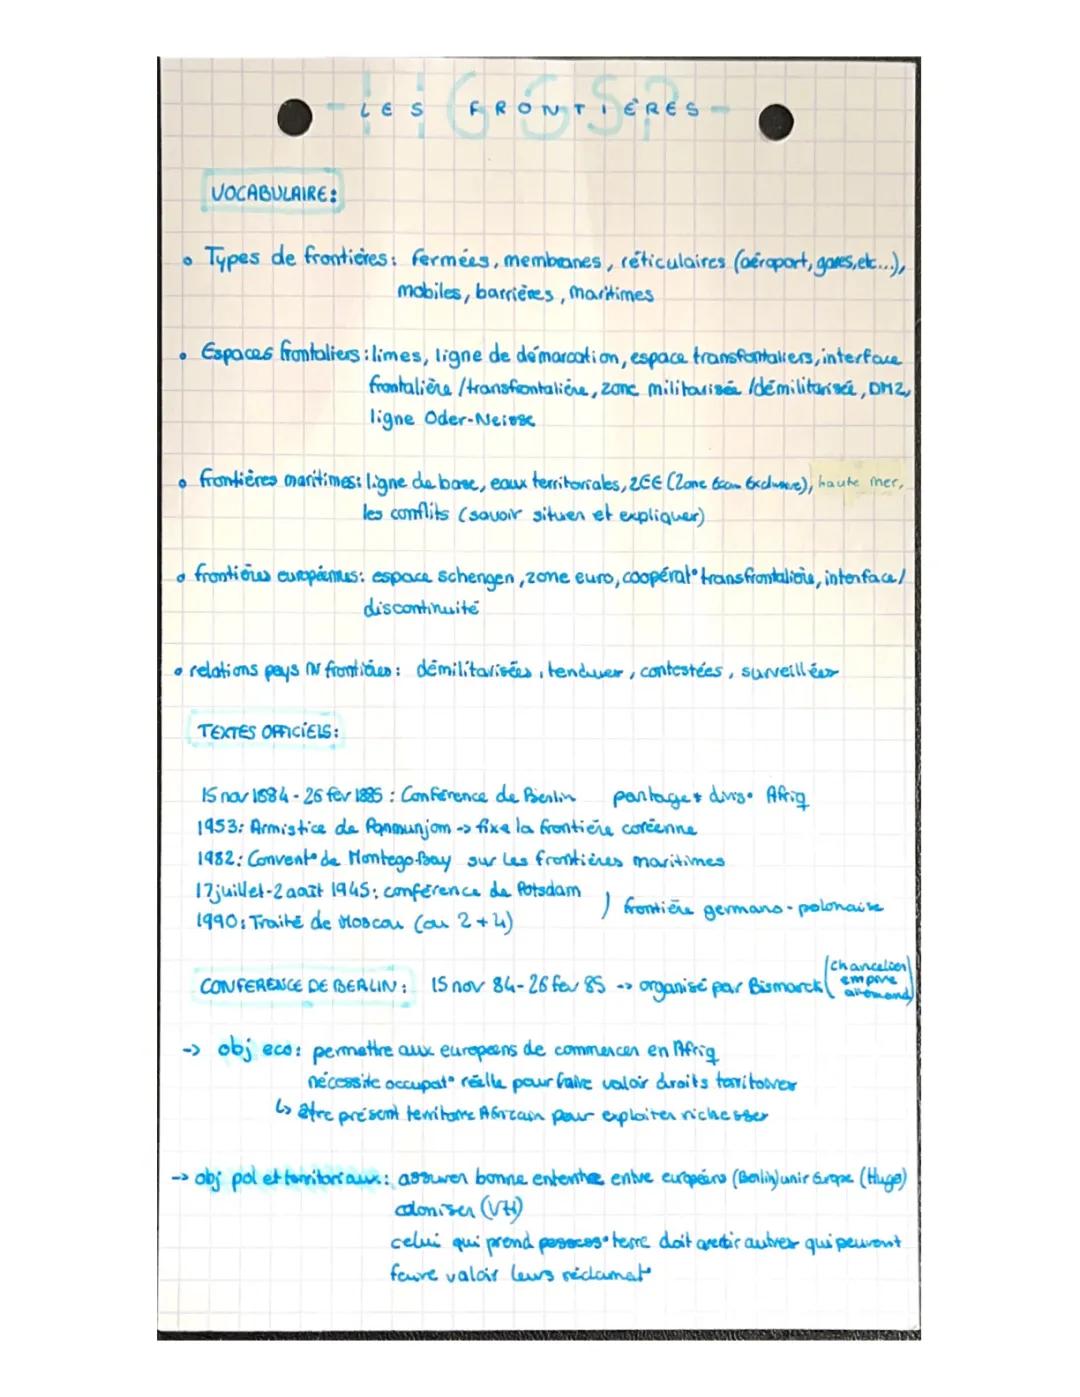 HGGSP
- LES FRONTIÈRES -
VOCABULAIRE:
• Types de frontières: fermées, membranes, réticulaires (aéroport, gares, etc...),
mobiles, barrières, maritimes
• Espaces frontaliers: limes, ligne de démarcation, espace transfontaliers, interface
frontalière / transfrontalière, zone militarisée / démilitarisée, DMZ,
ligne Oder-Neisse
• frontières maritimes: ligne de base, eaux territoriales, ZEE (Zone Econ Exclusive), haute mer,
les conflits (savoir situer et expliquer)
• frontières européennes: espace schengen, zone euro, coopérat° transfrontalière, interface/
discontinuité
• relations pays frontières: démilitarisées, tendues, contestées, surveillées
TEXTES OFFICIELS:
15 nov 1884 - 26 fev 1885: Conférence de Berlin partage + divis° Afriq
1953: Armistice de Panmunjom -> fixe la frontière coréenne
1982: Convent° de Montego Bay sur les frontières maritimes
17 juillet - 2 août 1945: conférence de Potsdam
1990: Traité de Moscou (ou 2+4) ) frontière germano-polonaise
CONFERENCE DE BERLIN: 15 nov 84 - 26 fev 85 -> organisé par Bismarck (chancelier
empire
allemand)
-> obj eco: permettre aux européens de commercer en Afriq
nécessite occupat° réelle pour faire valoir droits territoires
↳ être présent territoire Africain pour exploiter richesses
-> obj pol et territoriaux: assurer bonne entente entre européens (Berlin) unir Europe (Hugo)
coloniser (VH)
celui qui prend possess° terre doit avertir autres qui peuvent
faire valoir leurs réclamat°